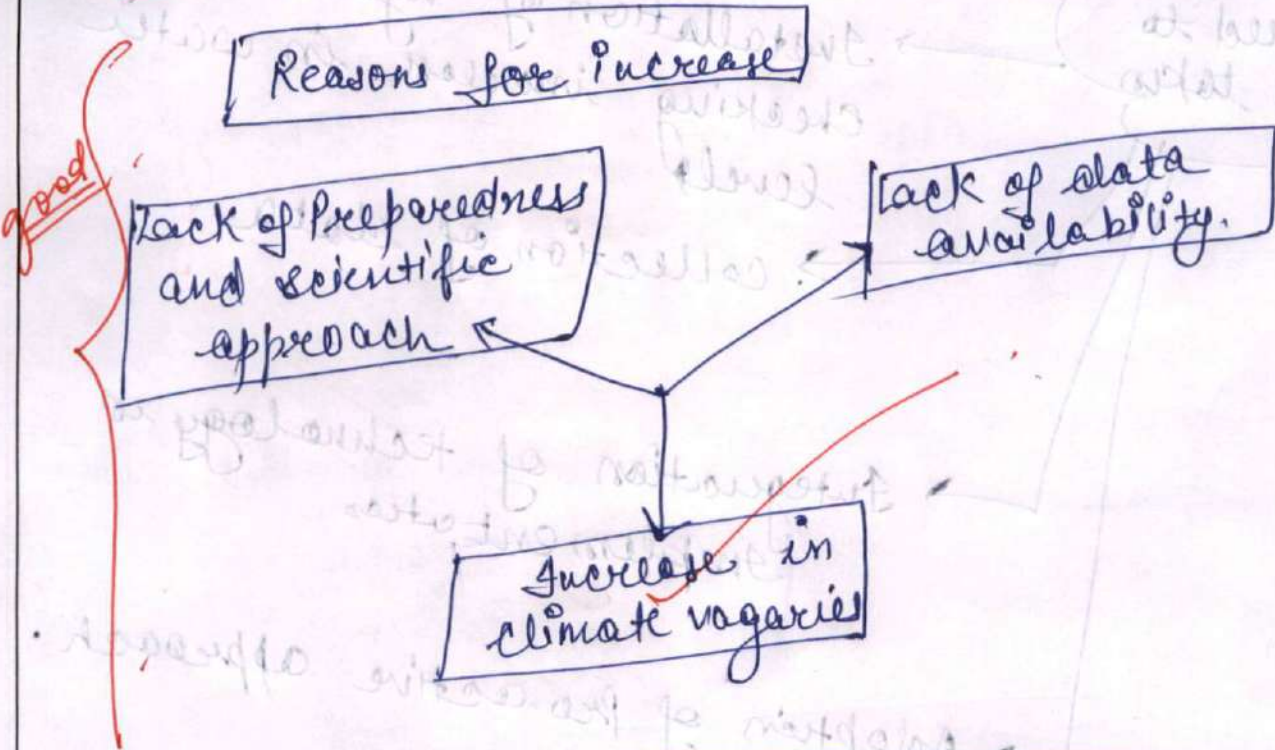 Reasons for increase
good
Lack of Preparedness
and scientific
approach
Lack of data
availability.
Increase in
climate vagaries